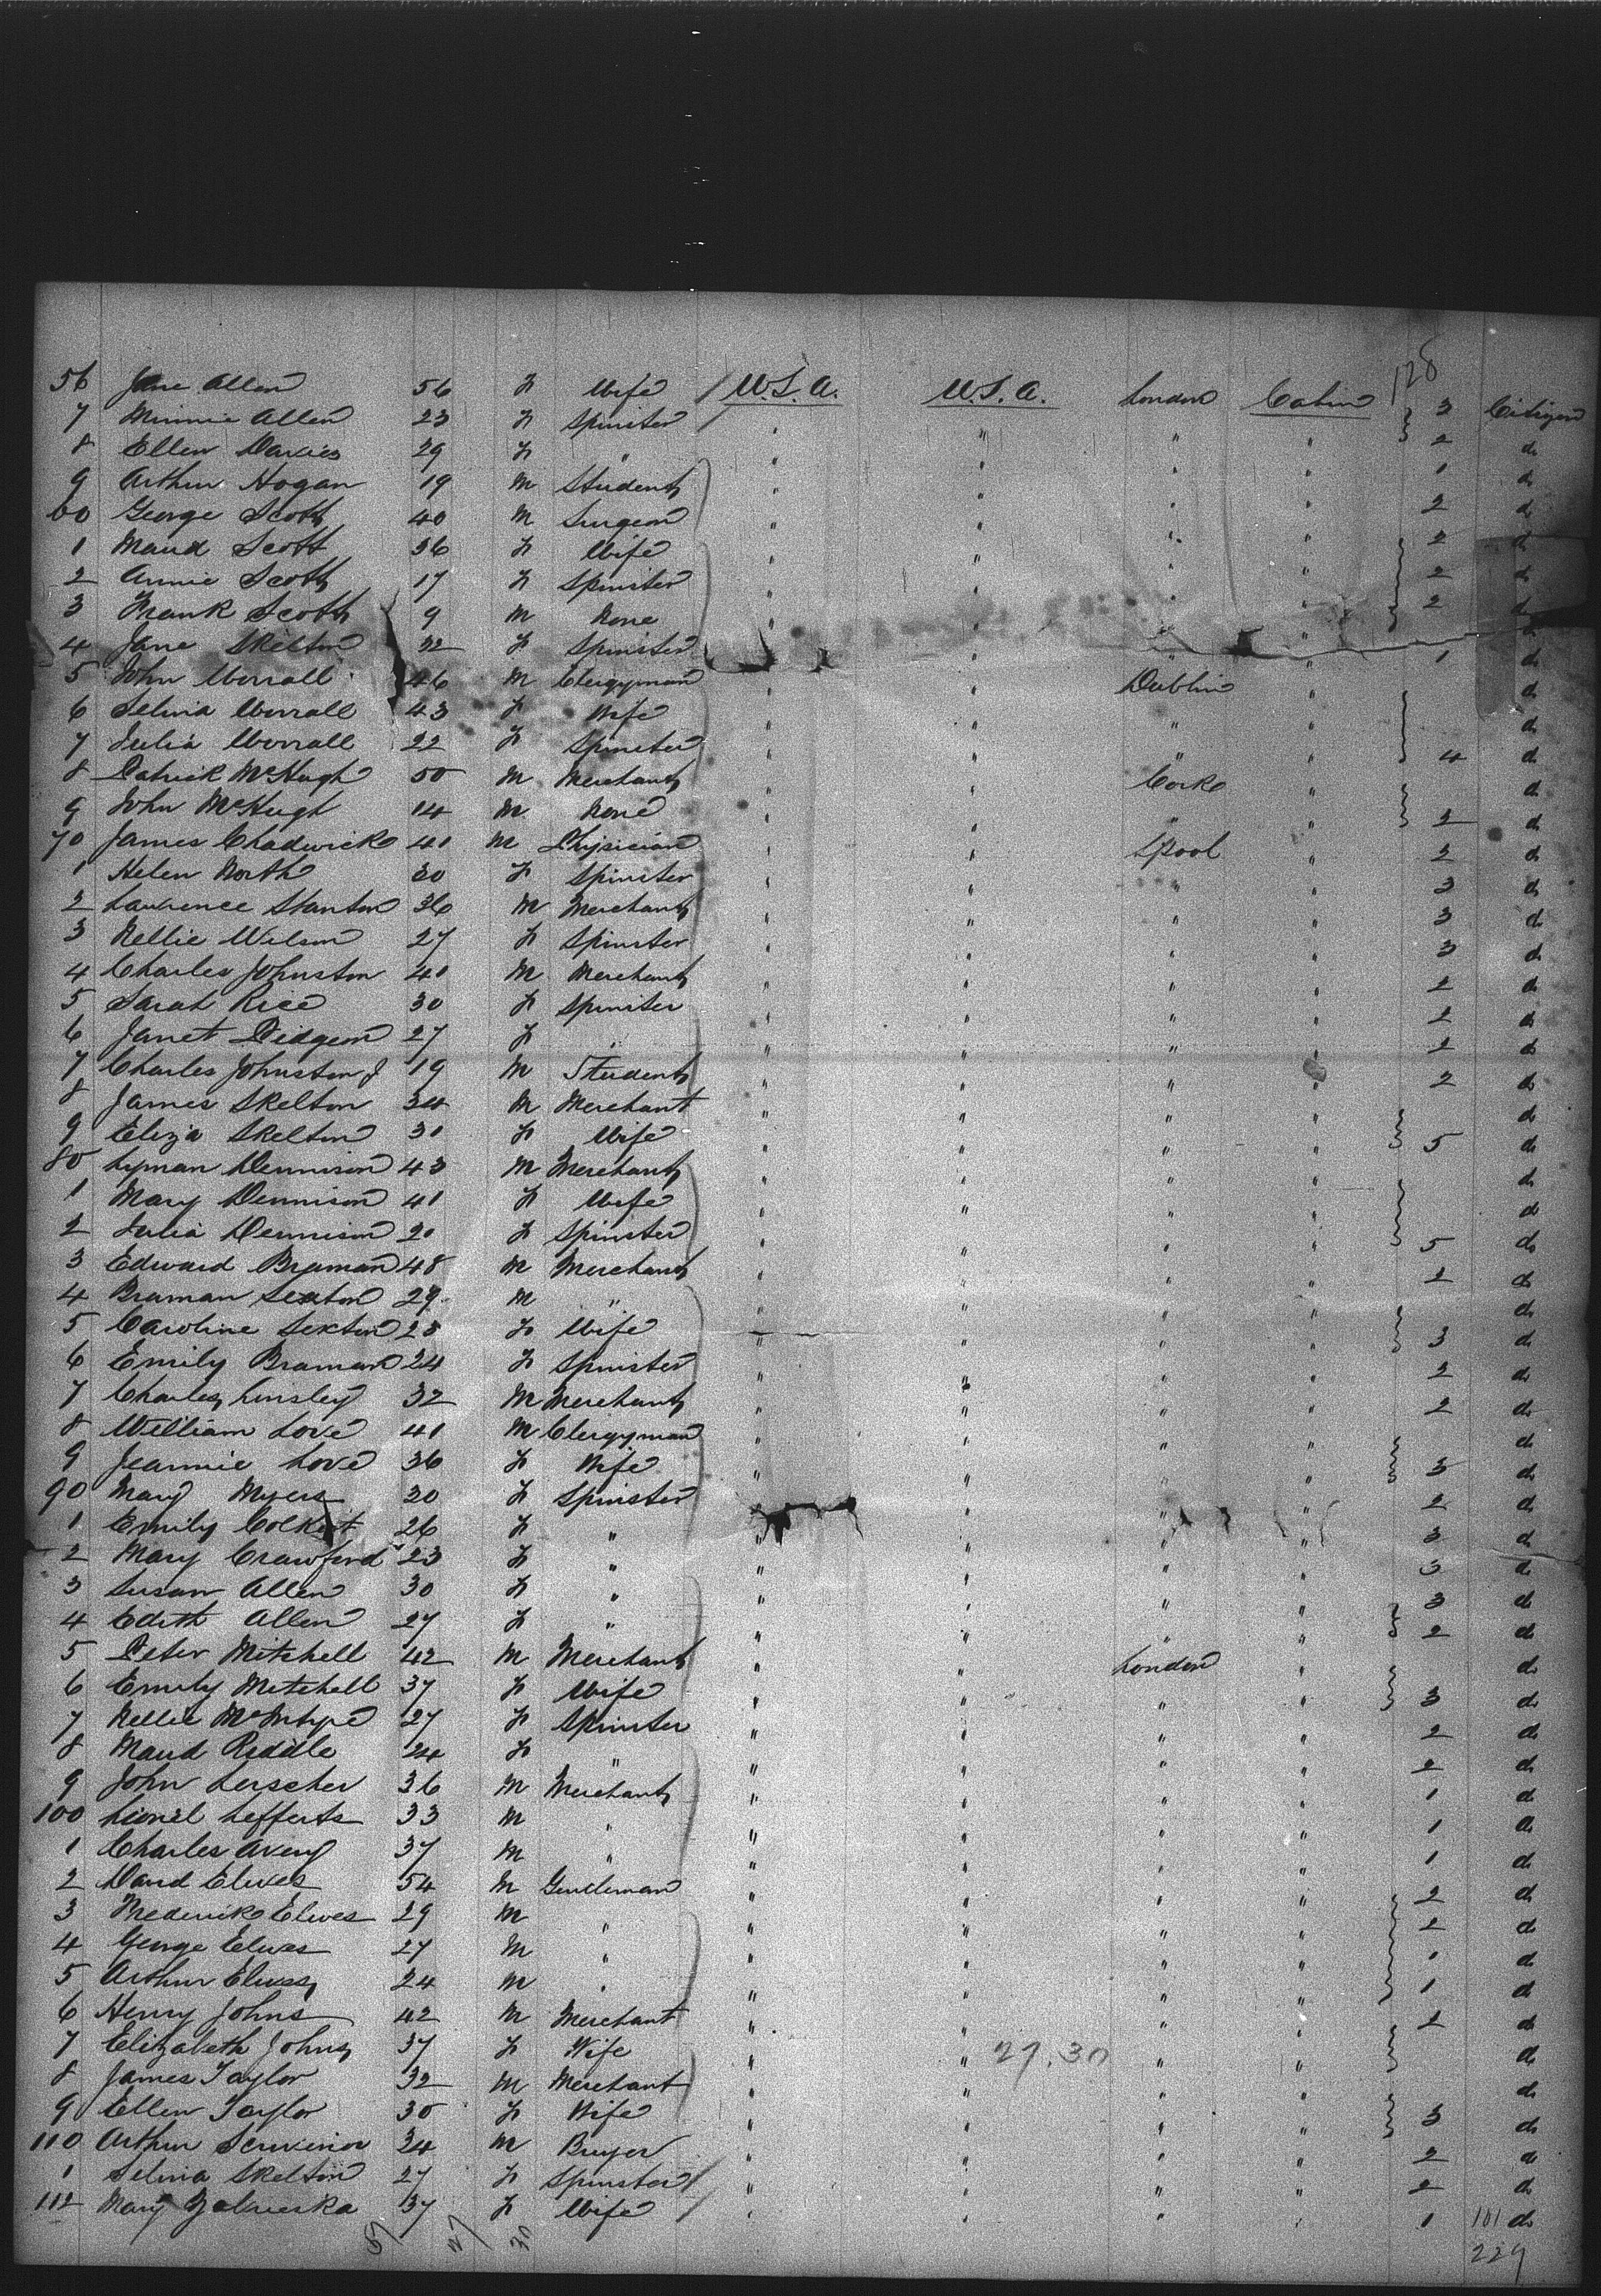 128
56 Jane Allen 56 F Wife U.S.A. U.S.A. London Cabin 3 Citizen
7 Minnie Allen 23 F Spinster " " " " 2 do
8 Ellen Davies 29 F " " " " " 1 do
9 Arthur Hogan 19 M Student " " " " 2 do
60 George Scott 40 M Surgeon " " " " 2 do
1 Maud Scott 36 F Wife " " " " 2 do
2 Annie Scott 17 F Spinster " " " " 2 do
3 Frank Scott 9 M None " " " " do
4 Jane Skelton 32 F Spinster " " " " 1 do
5 John Worrall 46 M Clergyman " " Dublin " do
6 Selina Worrall 43 F Wife " " " " do
7 Julia Worrall 22 F Spinster " " " " 4 do
8 Patrick McHugh 50 M Merchant " " Cork " do
9 John McHugh 14 M None " " " " 2 do
70 James Chadwick 41 M Physician " " LPool " 2 do
1 Helen North 30 F Spinster " " " " 3 do
2 Lawrence Stanton 36 M Merchant " " " " 3 do
3 Nellie Wilson 27 F Spinster " " " " 3 do
4 Charles Johnston 41 M Merchant " " " " 2 do
5 Sarah Rice 30 F Spinster " " " " 2 do
6 Janet Pidgeon 27 F " " " " " 2 do
7 Charles Johnston J 19 M Student " " " " 2 do
8 James Skelton 34 M Merchant " " " " do
9 Eliza Skelton 31 F Wife " " " " 5 do
80 Lyman Dennison 43 M Merchant " " " " do
1 Mary Dennison 41 F Wife " " " " do
2 Julia Dennison 20 F Spinster " " " " 5 do
3 Edward Braman 48 M Merchant " " " " 2 do
4 Braman Sexton 29 M " " " " " do
5 Caroline Sexton 28 F Wife " " " " 3 do
6 Emily Braman 24 F Spinster " " " " 2 do
7 Charles Linsley 32 M Merchant " " " " 2 do
8 William Love 41 M Clergyman " " " " do
9 Jeannie Love 36 F Wife " " " " 3 do
90 Mary Myers 30 F Spinster " " " " 2 do
1 Emily 26 F " " " " " 3 do
2 Mary Crawford 23 F " " " " " 3 do
3 Susan Allen 30 F " " " " " 3 do
4 Edith Allen 27 F " " " " " 2 do
5 Peter Mitchell 42 M Merchant " " London " do
6 Emily Mitchell 37 F Wife " " " " 3 do
7 Nellie McIntyre 27 F Spinster " " " " 2 do
8 Maud Riddle 24 F " " " " " 2 do
9 John Lerscher 36 M Merchant " " " " 1 do
100 Lionel Lefferts 33 M " " " " " 1 do
1 Charles Avery 37 M " " " " " 1 do
2 David Elwes 54 M Gentleman " " " " 2 do
3 Frederick Elwes 29 M " " " " " 2 do
4 George Elwes 27 M " " " " " 1 do
5 Arthur Elwes 24 M " " " " " 1 do
6 Henry Johns 42 M Merchant " " " " 2 do
7 Elizabeth Johns 37 F Wife " " 27.30 " " do
8 James Taylor 32 M Merchant " " " " do
9 Ellen Taylor 30 F Wife " " " " 3 do
110 Arthur Scrivenor 34 M Buyer " " " " 2 do
1 Selina Skelton 27 F Spinster " " " " 2 do
112 Mary 37 F Wife " " " " 1 101 do
27 30 229